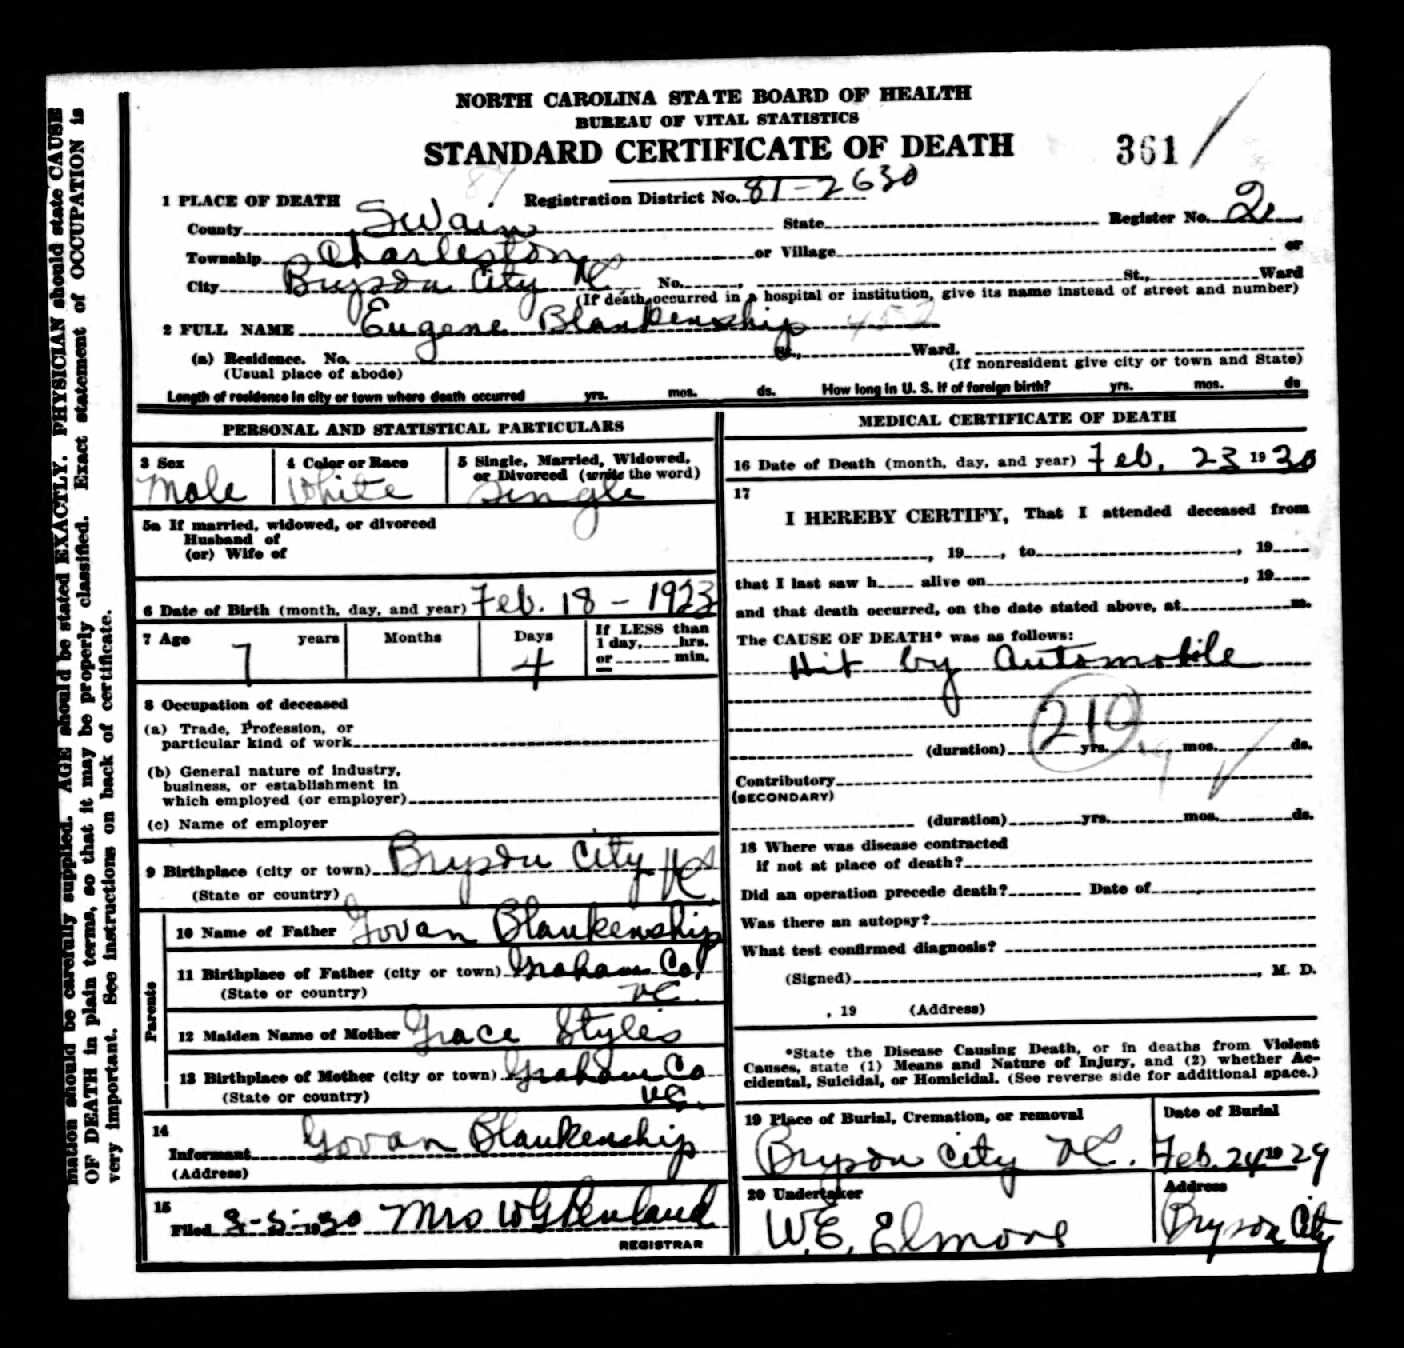 NORTH CAROLINA STATE BOARD OF HEALTH
BUREAU OF VITAL STATISTICS
STANDARD CERTIFICATE OF DEATH 361
1 PLACE OF DEATH Registration District No. 87-2630
County Swain State Register No. 2
Township Charleston or Village or
City Bryson City NC No. St., Ward
(If death occurred in a hospital or institution, give its name instead of street and number)
2 FULL NAME Eugene Blankenship
(a) Residence. No. St., Ward.
(Usual place of abode) (If nonresident give city or town and State)
Length of residence in city or town where death occurred yrs. mos. ds. How long in U. S. if of foreign birth? yrs. mos. ds
PERSONAL AND STATISTICAL PARTICULARS
3 Sex 4 Color or Race 5 Single, Married, Widowed,
or Divorced (write the word)
Male White Single
5a If married, widowed, or divorced
Husband of
(or) Wife of
6 Date of Birth (month, day, and year) Feb. 18 - 1923
7 Age 7 years Months Days 4 If LESS than
1 day, hrs.
or min.
8 Occupation of deceased
(a) Trade, Profession, or
particular kind of work
(b) General nature of industry,
business, or establishment in
which employed (or employer)
(c) Name of employer
9 Birthplace (city or town) Bryson City NC
(State or country)
Parents
10 Name of Father Govan Blankenship
11 Birthplace of Father (city or town) Graham Co
(State or country) NC.
12 Maiden Name of Mother Grace Styles
13 Birthplace of Mother (city or town) Graham Co
(State or country) NC.
14
Informant Govan Blankenship
(Address)
15
Filed 3-5-1930 Mrs W G Penland
REGISTRAR
MEDICAL CERTIFICATE OF DEATH
16 Date of Death (month, day, and year) Feb. 23 1930
17
I HEREBY CERTIFY, That I attended deceased from
, 19 , to , 19
that I last saw h alive on , 19
and that death occurred, on the date stated above, at m.
The CAUSE OF DEATH* was as follows:
Hit by automobile
210
(duration) yrs. mos. ds.
Contributory
(SECONDARY)
(duration) yrs. mos. ds.
18 Where was disease contracted
if not at place of death?
Did an operation precede death? Date of
Was there an autopsy?
What test confirmed diagnosis?
(Signed) , M. D.
, 19 (Address)
*State the Disease Causing Death, or in deaths from Violent
Causes, state (1) Means and Nature of Injury, and (2) whether Ac-
cidental, Suicidal, or Homicidal. (See reverse side for additional space.)
19 Place of Burial, Cremation, or removal Date of Burial
Bryson City NC. Feb. 24 1929
20 Undertaker Address
W. E. Elmore Bryson City
mation should be carefully supplied. AGE should be stated EXACTLY. PHYSICIAN should state CAUSE
OF DEATH in plain terms, so that it may be properly classified. Exact statement of OCCUPATION is
very important. See instructions on back of certificate.